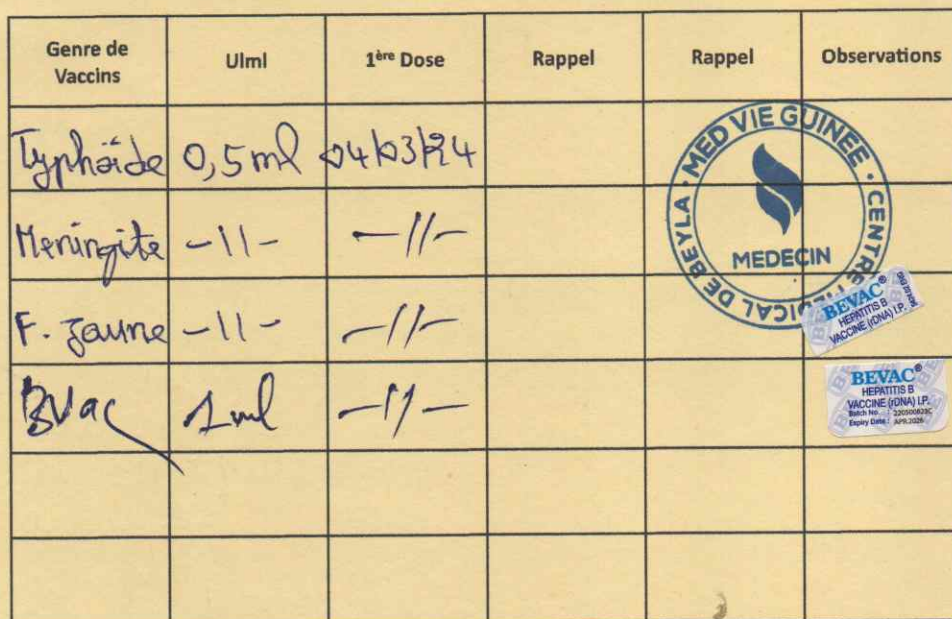 Genre de
Vaccins
Ulml
1ère Dose
Rappel
Rappel
Observations
Typhoïde 0,5 ml 04/03/24
Meningite -11- -//-
F. Jaune -11- -//-
BVac 1 ml -11-
MED VIE GUINEE · CENTRE MEDICAL DE BEYLA ·
MEDECIN
BEVAC®
HEPATITIS B
VACCINE (rDNA) I.P.
BEVAC®
HEPATITIS B
VACCINE (rDNA) I.P.
Batch No.
Expiry Date : APR.2026